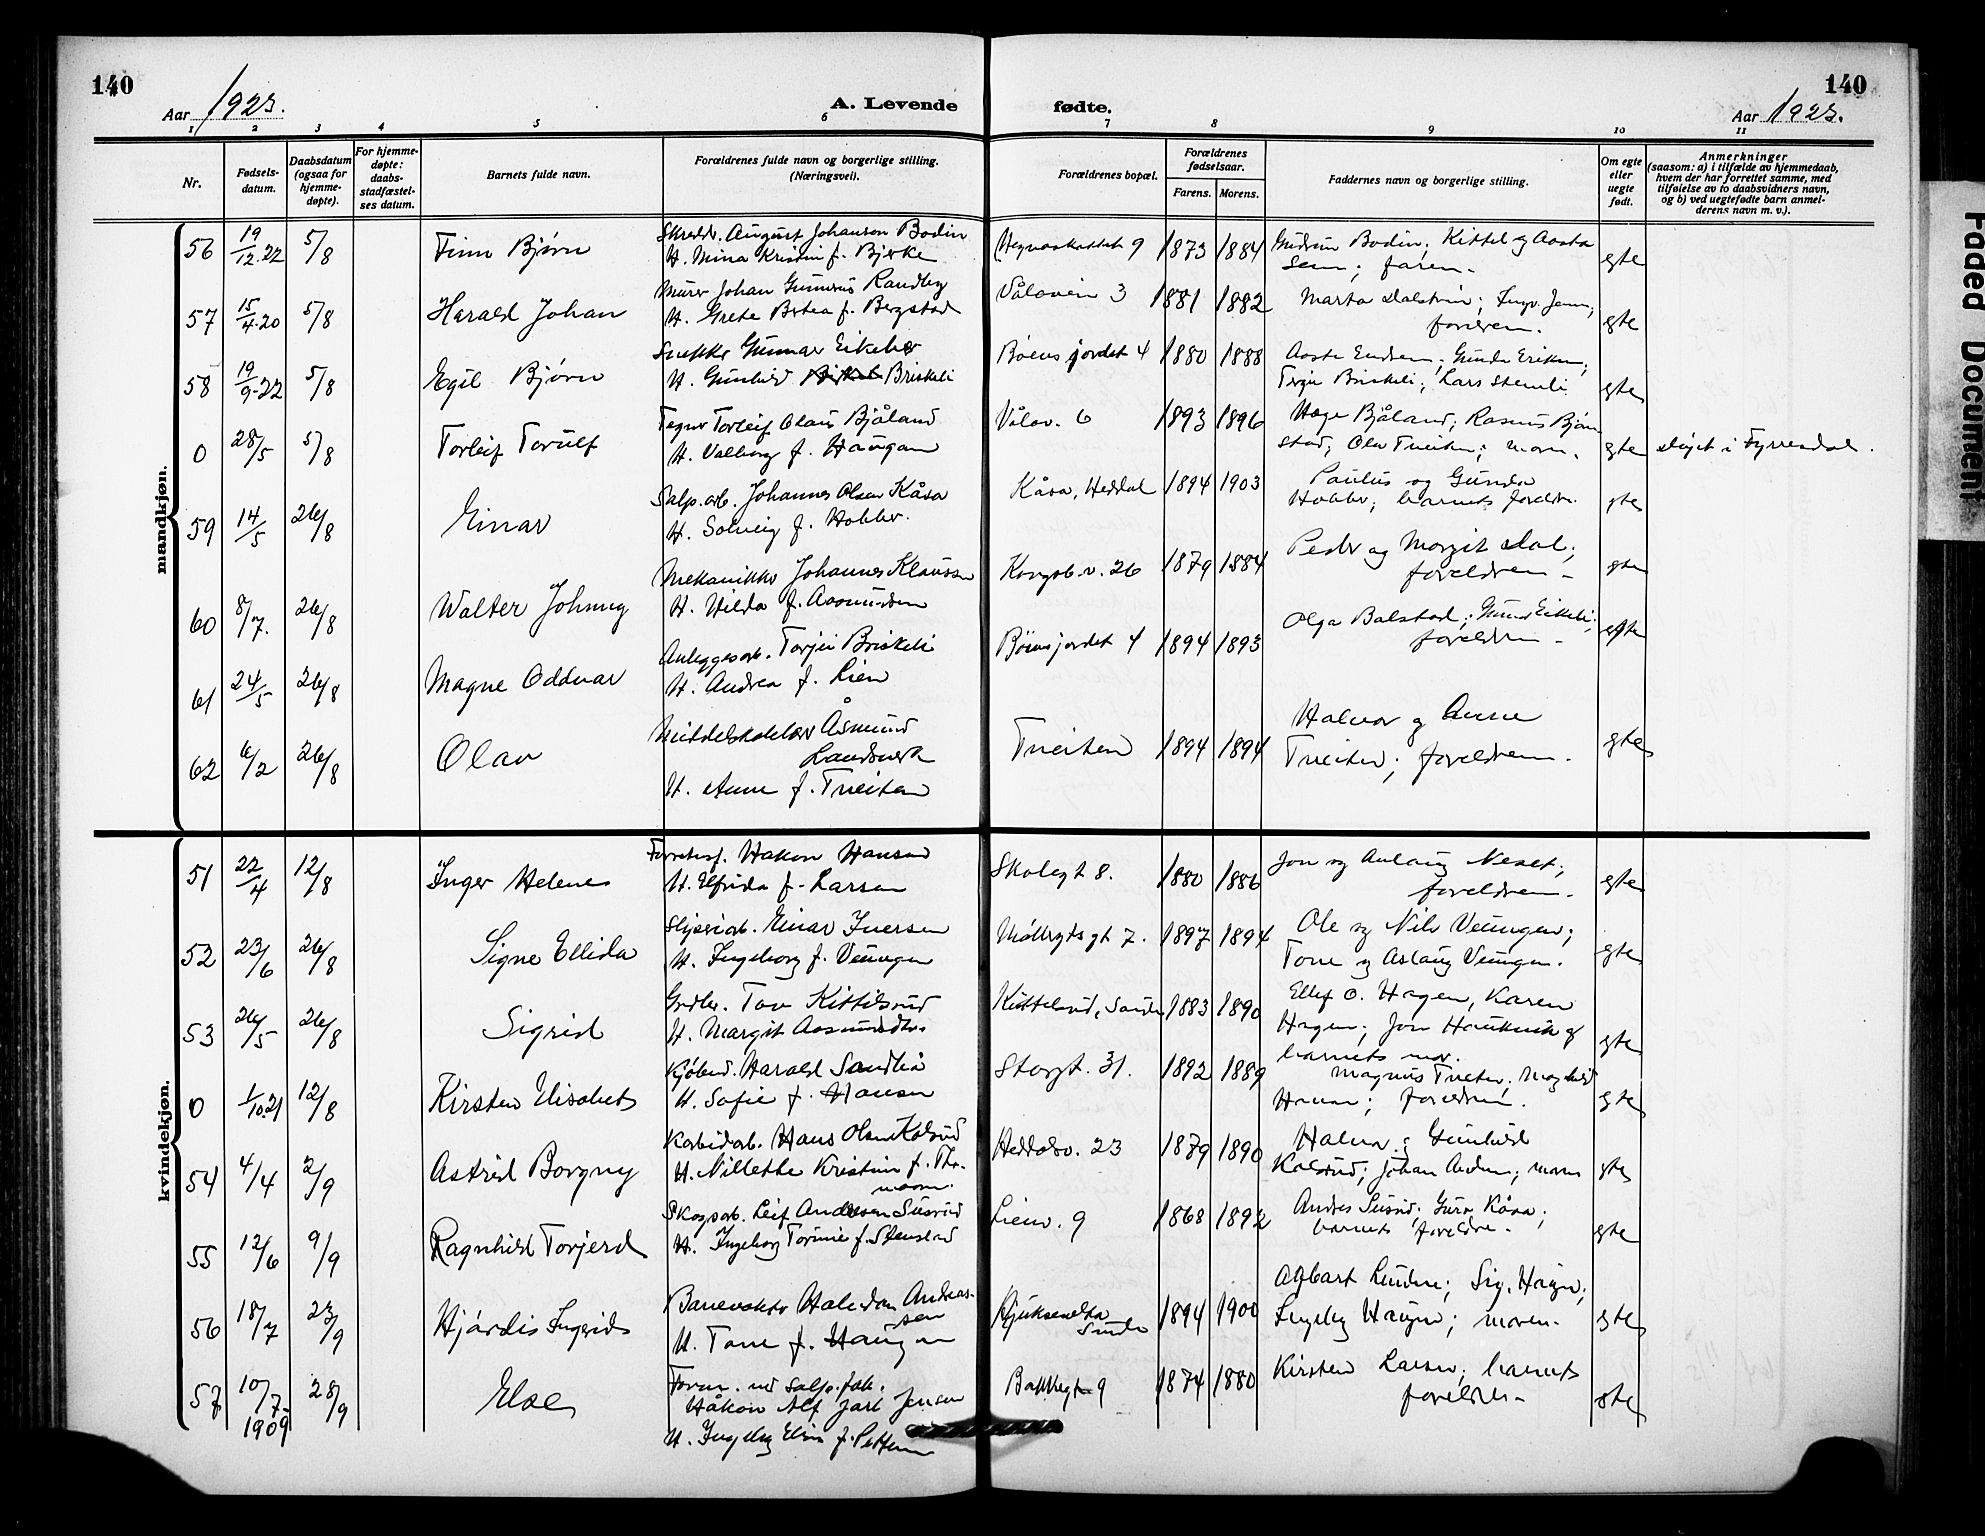 140
Aar 1923.
A. Levende
fødte.
140
Aar 1923.
1 2 3 4 5 6 7 8 9 10 11
Nr.
Fødsels-datum.
Daabsdatum (ogsaa for hjemme-døpte).
For hjemme-døpte: daabs-stadfæstel-ses datum.
Barnets fulde navn.
Forældrenes fulde navn og borgerlige stilling. (Næringsvei).
Forældrenes bopæl.
Forældrenes fødselsaar.
Farens. Morens.
Faddernes navn og borgerlige stilling.
Om egte eller uegte født.
Anmerkninger (saasom: a) i tilfælde av hjemmedaab, hvem der har forrettet samme, med tilføielse av to daabsvidners navn, og b) ved uegtefødte barn anmel-derens navn m. v.).
mandkjøn.
56 19/12.22 5/8 Finn Bjørn
Skredd. August Johanson Bodin
H. Mina Kristin f. Bjerke
9 1873 1884
Gudrun Bodin; Kittel og Aasta
Sem; faren.
egte
57 15/4.20 5/8 Harald Johan
Murer Johan Gunerius Randby
H. Grete Bertea f. Bergstad
Våloveien 3 1881 1882
Marta Dalstrin; Ingv. Jenn;
foreldren.
egte
58 19/9.22 5/8 Egil Bjørn
Snekker Gunnar Eikeli
H. Gunhild Briskeli
Bøens jordet 4 1880 1888
Aaste Endresen; Gunda Eriksen;
Terjei Briskeli; Lars Stemli
egte
0 28/5 5/8 Torleif Torulf
Tegner Torleif Olaus Bjåland
H. Valborg f. Haugan
Vålov. 6 1893 1896
Hege Bjåland; Rasmus Bjørn
stad; Olav Tveiten; moren.
egte døpt i Fyresdal.
59 14/5 26/8 Einar
Salp.arb. Johannes Olsen Kåsa
H. Solveig f. Holler.
Kåsa, Heddal 1894 1903
Paulus og Gunda
Holler; barnets foreldre.
egte
60 8/7. 26/8 Walter Johnny
Mekaniker Johannes Klausen
H. Hilda f. Aasmundsen
Kongsb.v. 26 1879 1884
Peder og Margit Dal;
foreldren -
egte
61 24/5 26/8 Magne Oddvar
Anleggsarb. Torjei Briskeli
H. Andrea f. Lien
Bøensjordet 4 1894 1893
Olga Balstad; Gunnar Eikeli;
foreldren -
egte
62 6/2 26/8 Olav
Middelskolelær Åsmund
Landsverk
H. Anne f. Tveiten
Tveiten 1894 1894
Halvor og Anne
Tveiten; foreldrene.
egte
kvindekjøn.
51 22/4 12/8 Inger Helene
Forretnsf. Hakon Hansen
H. Elfrida f. Larsen
Skolegt 8. 1880 1886
Jon og Aslaug Neset;
foreldren -
egte
52 23/6 26/8 Signe Ellida
Sliperiarb. Einar Iversen
H. Ingeborg f. Venngen
gt 7. 1897 1894
Ole og Nils Venngen;
Tone og Aslaug Venngen.
egte
53 26/5 26/8 Sigrid
Grdbr. Tov Kittilsrud
H. Margit Aasmundsdtr
Kittelsrud, Sande 1883 1890
Ellef O. Hagen, Karen
Hagen; Jon Haukvik og
barnets mor.
egte
0 1/10.21 12/8 Kirsten Elisabet
Kjøbmd. Harald Sandlia
H. Sofie f. Hansen
Storgt. 31. 1892 1889
Magnus Tveiten; Maghild
Hansen; foreldrene.
egte
54 4/4 2/9 Astrid Borgny
Karbidarb. Hans Olsen Kolsrud
H. Nillethe Kristine f. Tho-
masn.
Heddalsv. 23 1879 1890
Halvor og Gunhild
Kolsrud; Johan Andersen; moren
egte
55 12/6 9/9 Ragnhild Torjerd
Skogsarb. Leif Andersen Susrud
H. Ingeborg Tomine f. Stenstad
Lienv. 9 1868 1892
Anders Susrud; Guro Kåsa;
barnets foreldre.
egte
56 18/7 23/9 Hjørdis Ingerid
Banevokter Halvdan Andreas-
sen
H. Tone f. Haugen
Hjuksevelta
Sande 1894 1900
Agbart Lindsen; Sig. Haugen;
Ingeborg Haugen; moren.
egte
57 10/7-1909 28/9 Else
Form. ved Salp.fab.
Håkon Alf Jarl Jensen
H. Ingeborg Elvin f. Pettersen
Bakkegt 9 1874 1880
Kirsten Larsen; barnets
foreldre -
egte
Faded Document